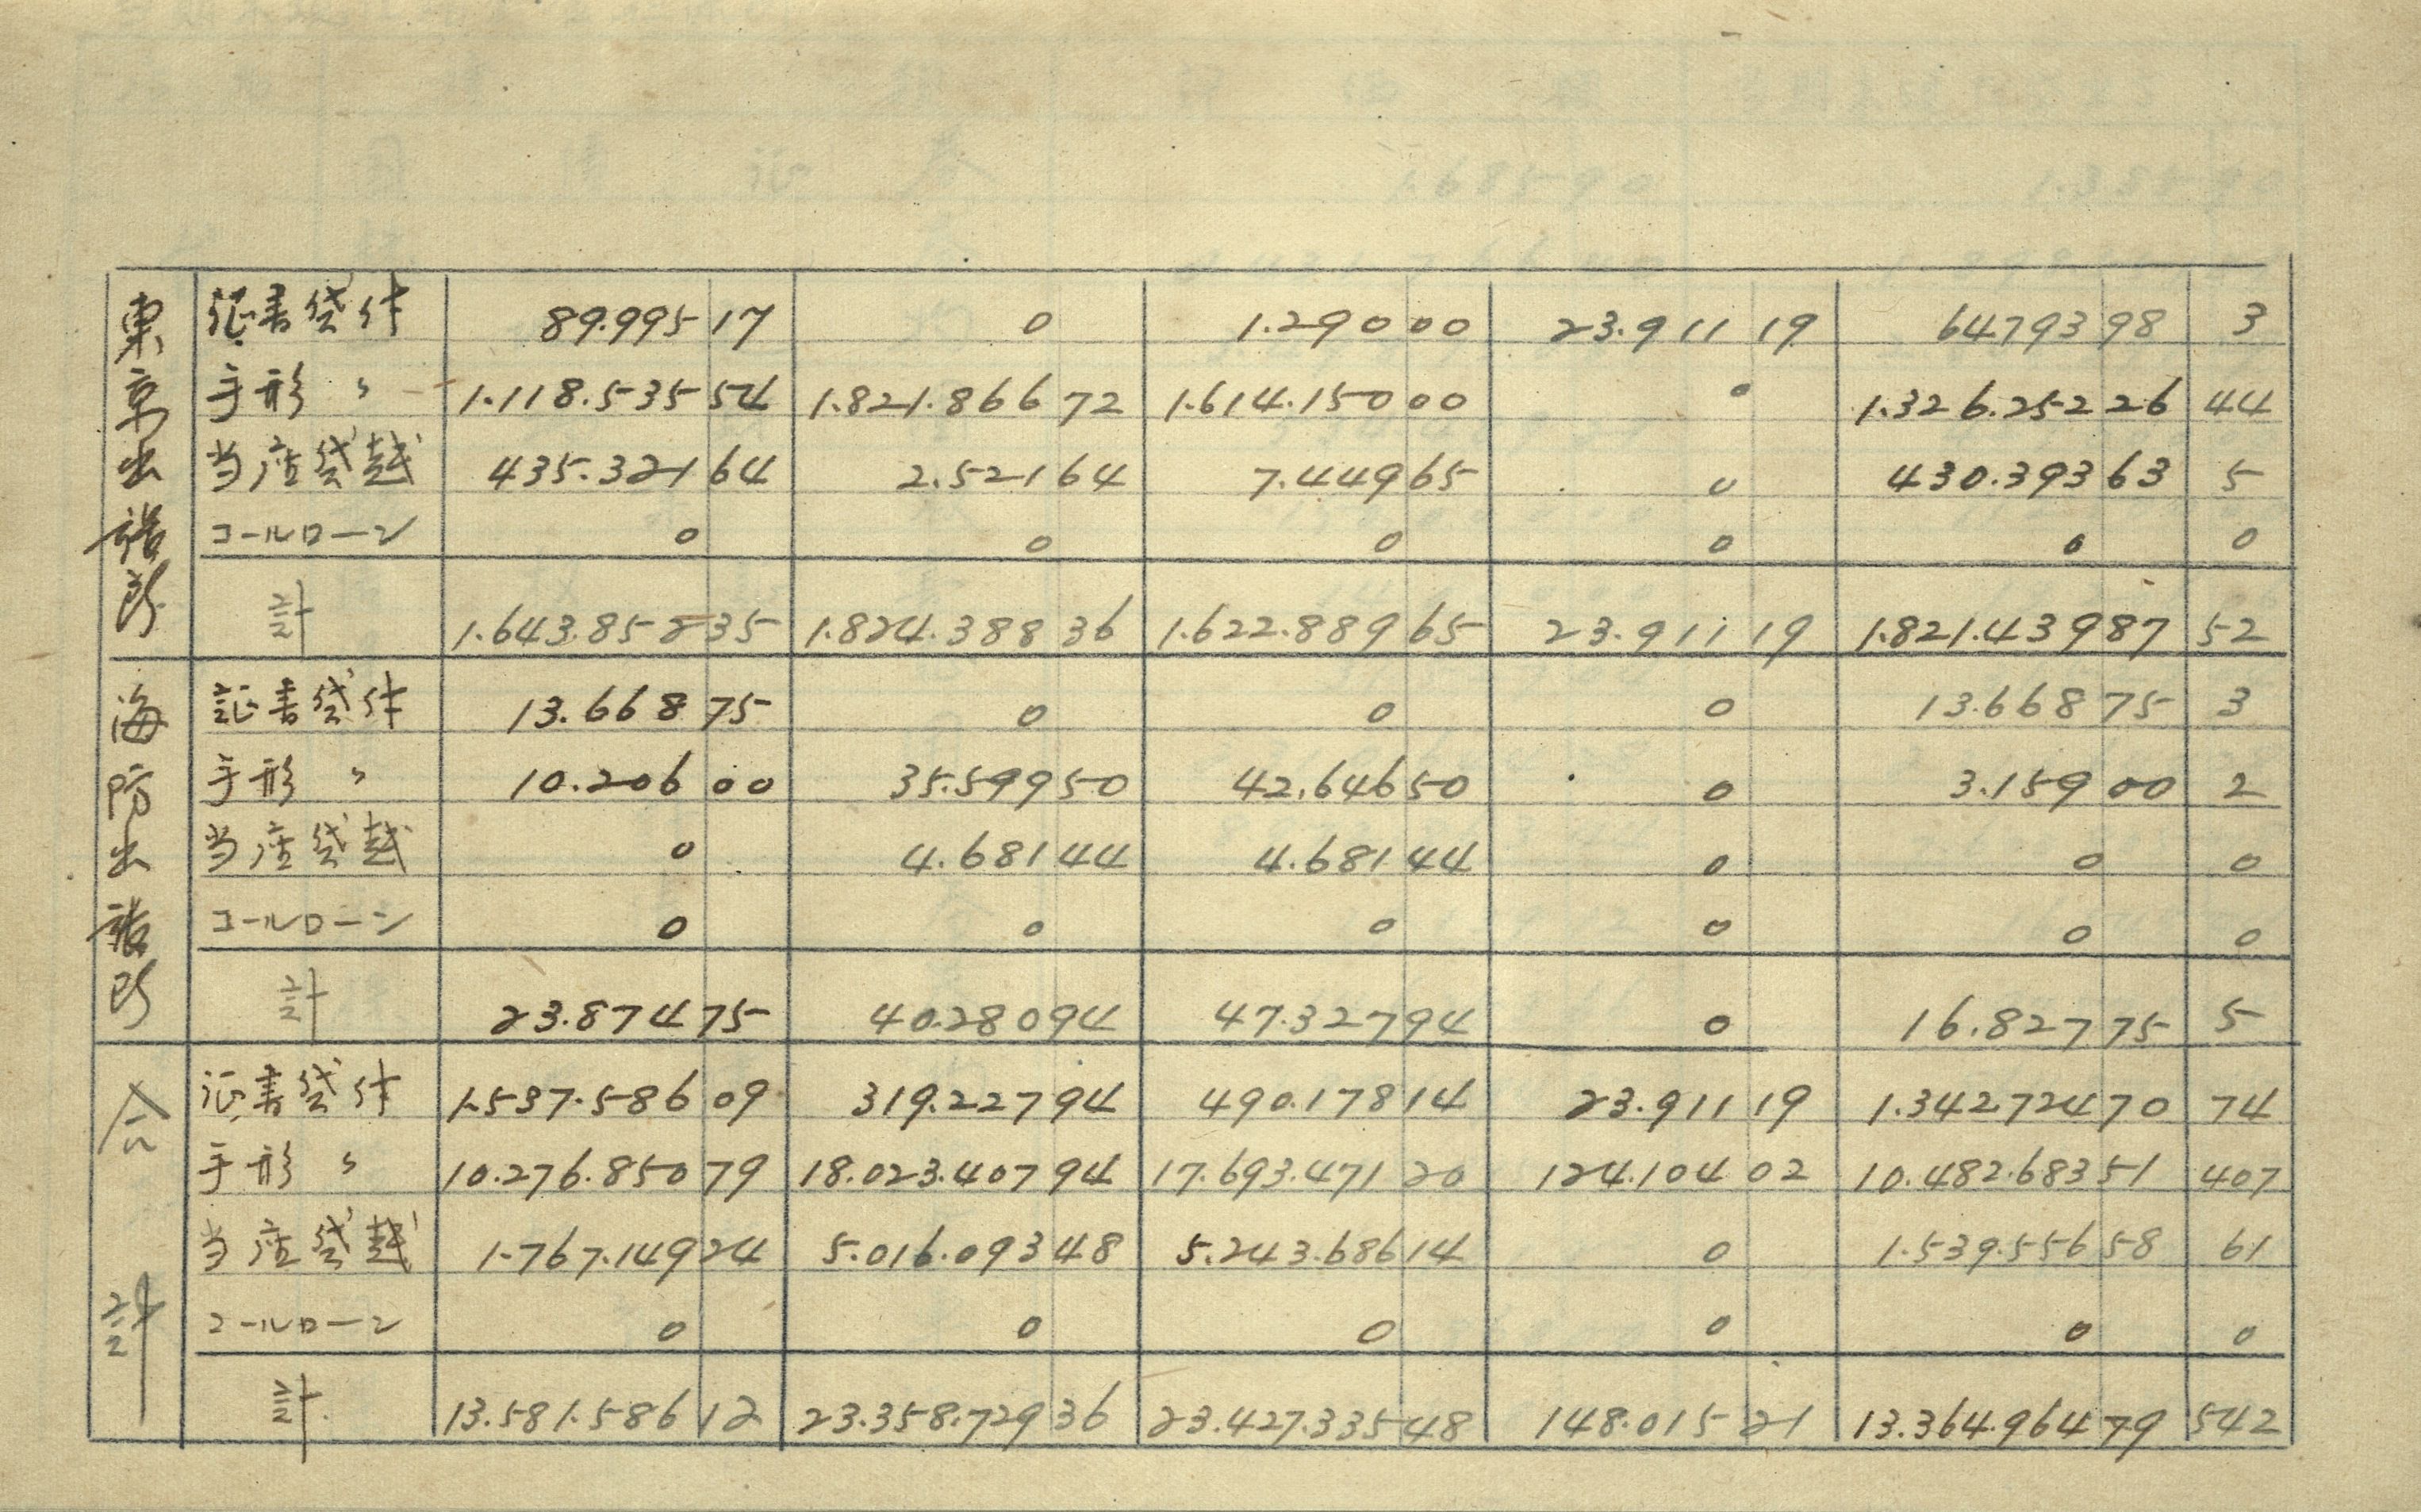 東京出張所
証書貸付 89.995 17 0 1.290 00 23.911 19 64793 98 3
手形 〃 1.118.535 54 1.821.866 72 1.614.150 00 0 1.326.252 26 44
当座貸越 435.321 64 2.521 64 7.449 65 0 430.393 63 5
コールローン 0 0 0 0 0 0
計 1.643.852 35 1.824.388 36 1.622.889 65 23.911 19 1.821.439 87 52
海防出張所
証書貸付 13.668 75 0 0 0 13.668 75 3
手形 〃 10.206 00 35.599 50 42.646 50 0 3.159 00 2
当座貸越 0 4.681 44 4.681 44 0 0 0
コールローン 0 0 0 0 0 0
計 23.874 75 40.280 94 47.327 94 0 16.827 75 5
合計
証書貸付 1.537.586 09 319.227 94 490.178 14 23.911 19 1.342724 70 74
手形 〃 10.276.850 79 18.023.407 94 17.693.471 20 124.104 02 10.482.683 51 407
当座貸越 1.767.149 24 5.016.093 48 5.243.686 14 0 1.539.556 58 61
コールローン 0 0 0 0 0 0
計 13.581.586 12 23.358.729 36 23.427.335 48 148.015 21 13.364.964 79 542